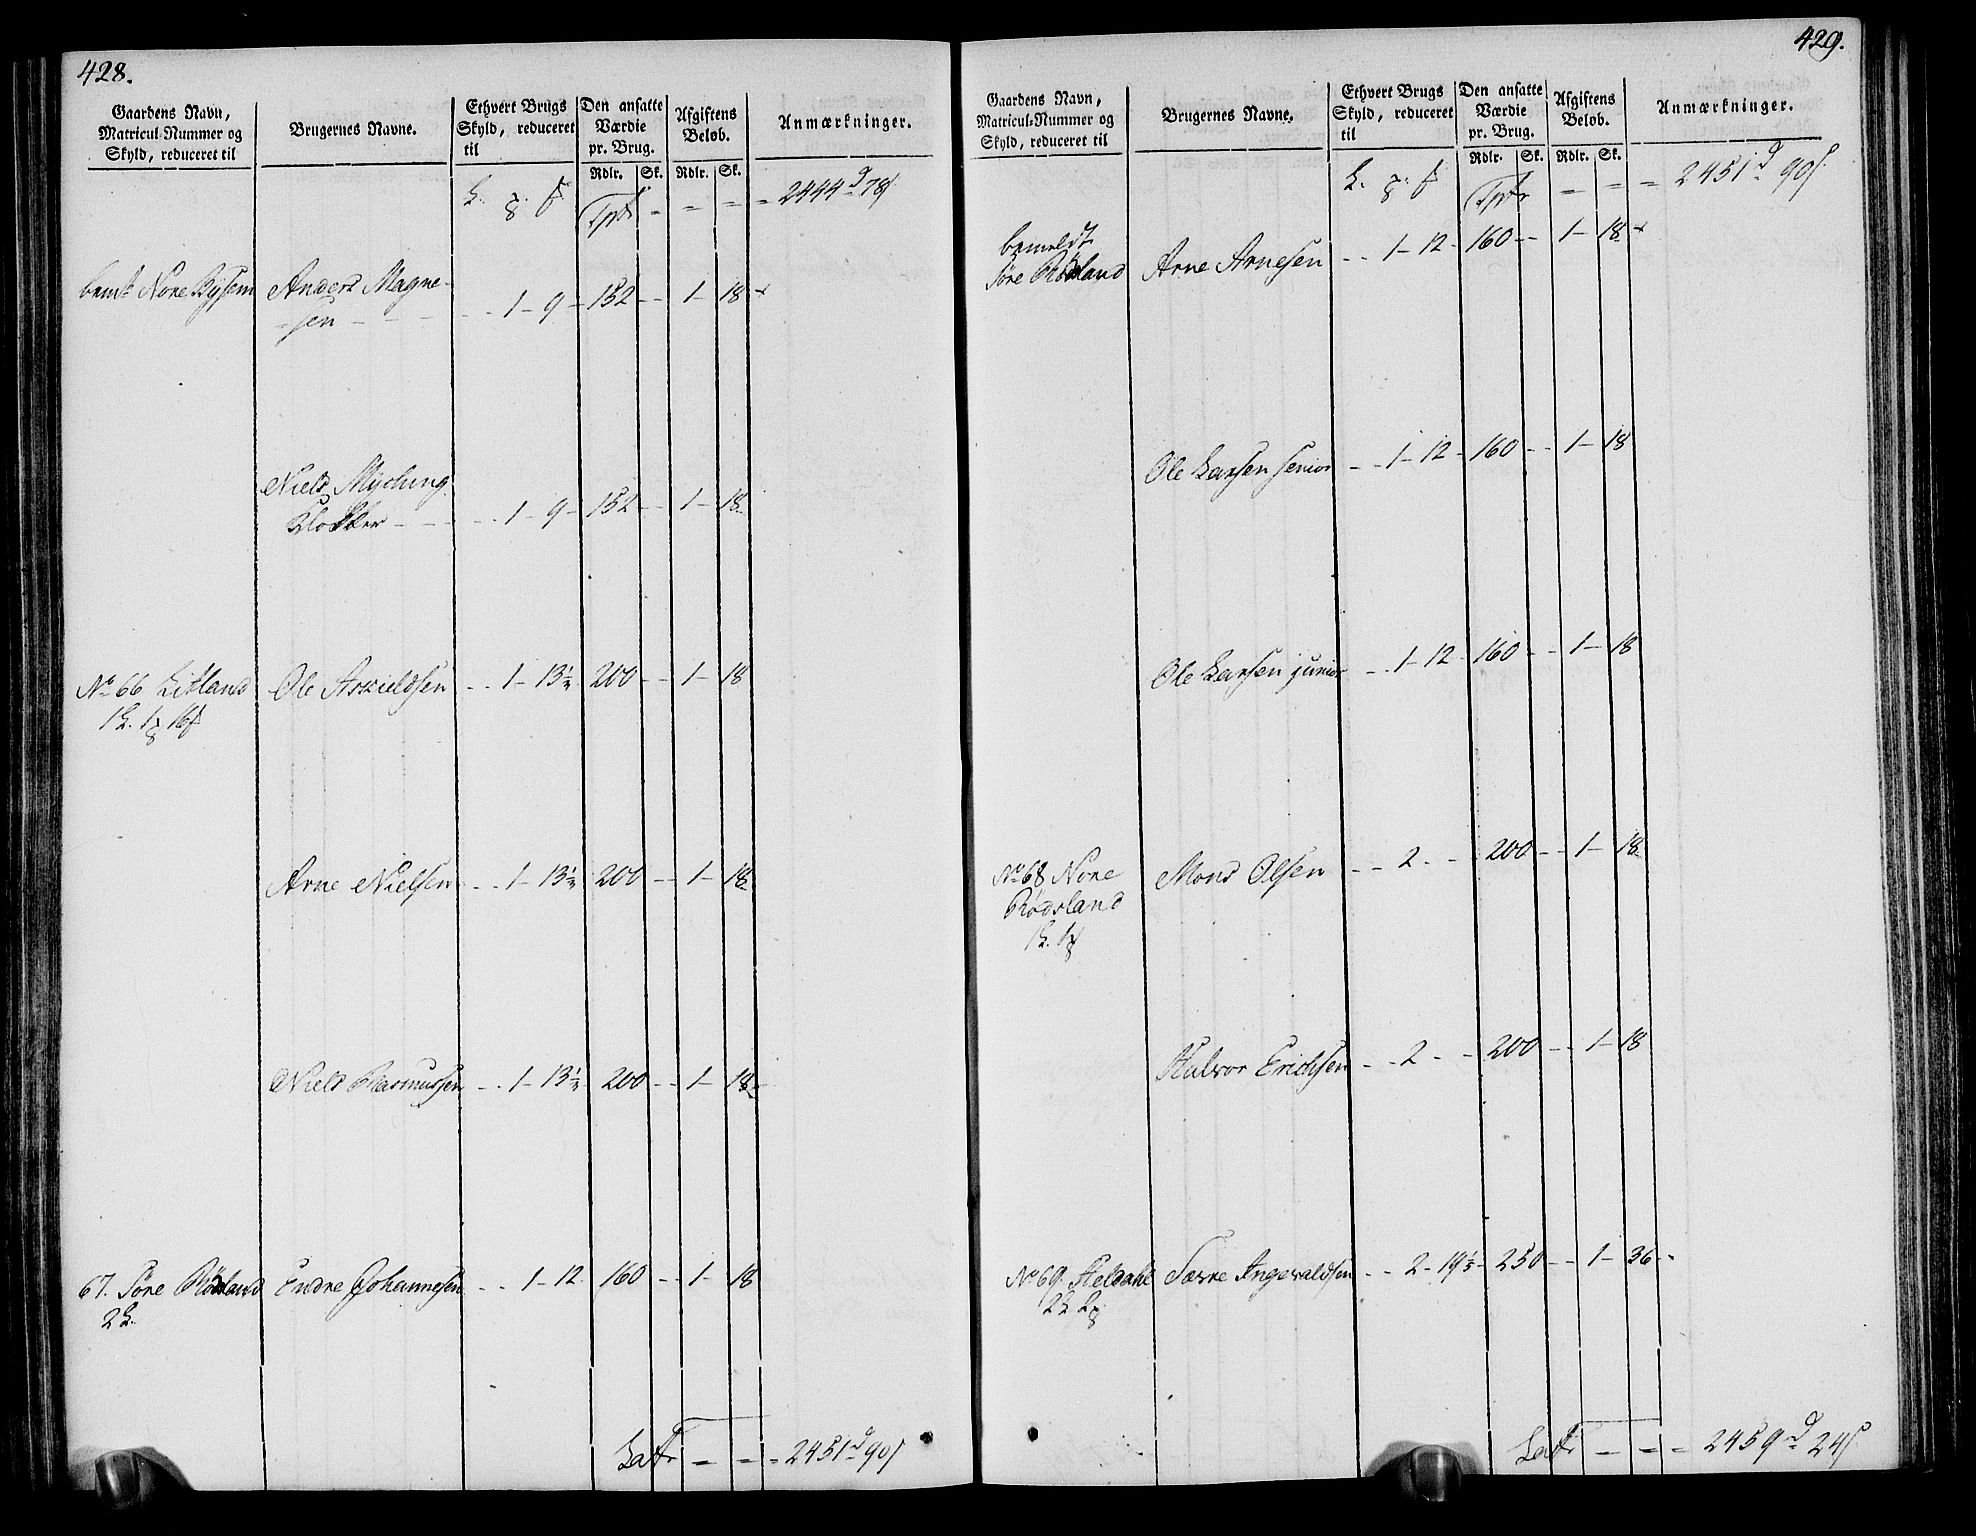 428.
Gaardens Navn, Matricul-Nummer og Skyld, reduceret til | Brugernes Navne. | Ethvert Brugs Skyld, reduceret til | Den ansatte Værdie pr. Brug. | Afgiftens Beløb. | Anmærkninger.
Rdlr. Sk. Rdlr. Sk.
Tpt = = = 2444 78
bemt Nore Bysem Anders Magne-
sen - - - - - 1 - 9 - 152 - - 1 - 18
Niels Myching
Klokker - - - - 1 - 9 - 152 - - 1 - 18
No 66 Litland Ole Askieldsen - - 1 - 13½ 200 - - 1 - 18
1 L. 1 16
Arne Nielsen - - 1 - 13½ 200 - - 1 - 18
Niels Rasmussen - - 1 - 13½ 200 - - 1 - 18
67. Søre Rødsland Endre Johannesen - - 1 - 12 160 - - 1 - 18
2 L.
Latr = = = 2451 90
429.
Gaardens Navn, Matricul-Nummer og Skyld, reduceret til | Brugernes Navne. | Ethvert Brugs Skyld, reduceret til | Den ansatte Værdie pr. Brug. | Afgiftens Beløb. | Anmærkninger.
Rdlr. Sk. Rdlr. Sk.
Tptr = = = 2451 90
bemeldt
Søre Rødsland Arne Arnesen - - 1 - 12 - 160 - - 1 - 18
Ole Larsen senior - - 1 - 12 - 160 - - 1 - 18
Ole Larsen junior - - 1 - 12 - 160 - - 1 - 18
No 68 Nore Mons Olsen - - 2 - - 200 - - 1 - 18
Rødsland
1 L. 1
Halvor Erichsen - - 2 - - 200 - - 1 - 18
No 69. Heldahl Sævre Ingevaldsen - - 2 - 19½ - 250 - - 1 - 36
2 L 2
Latr = = = 2459 24